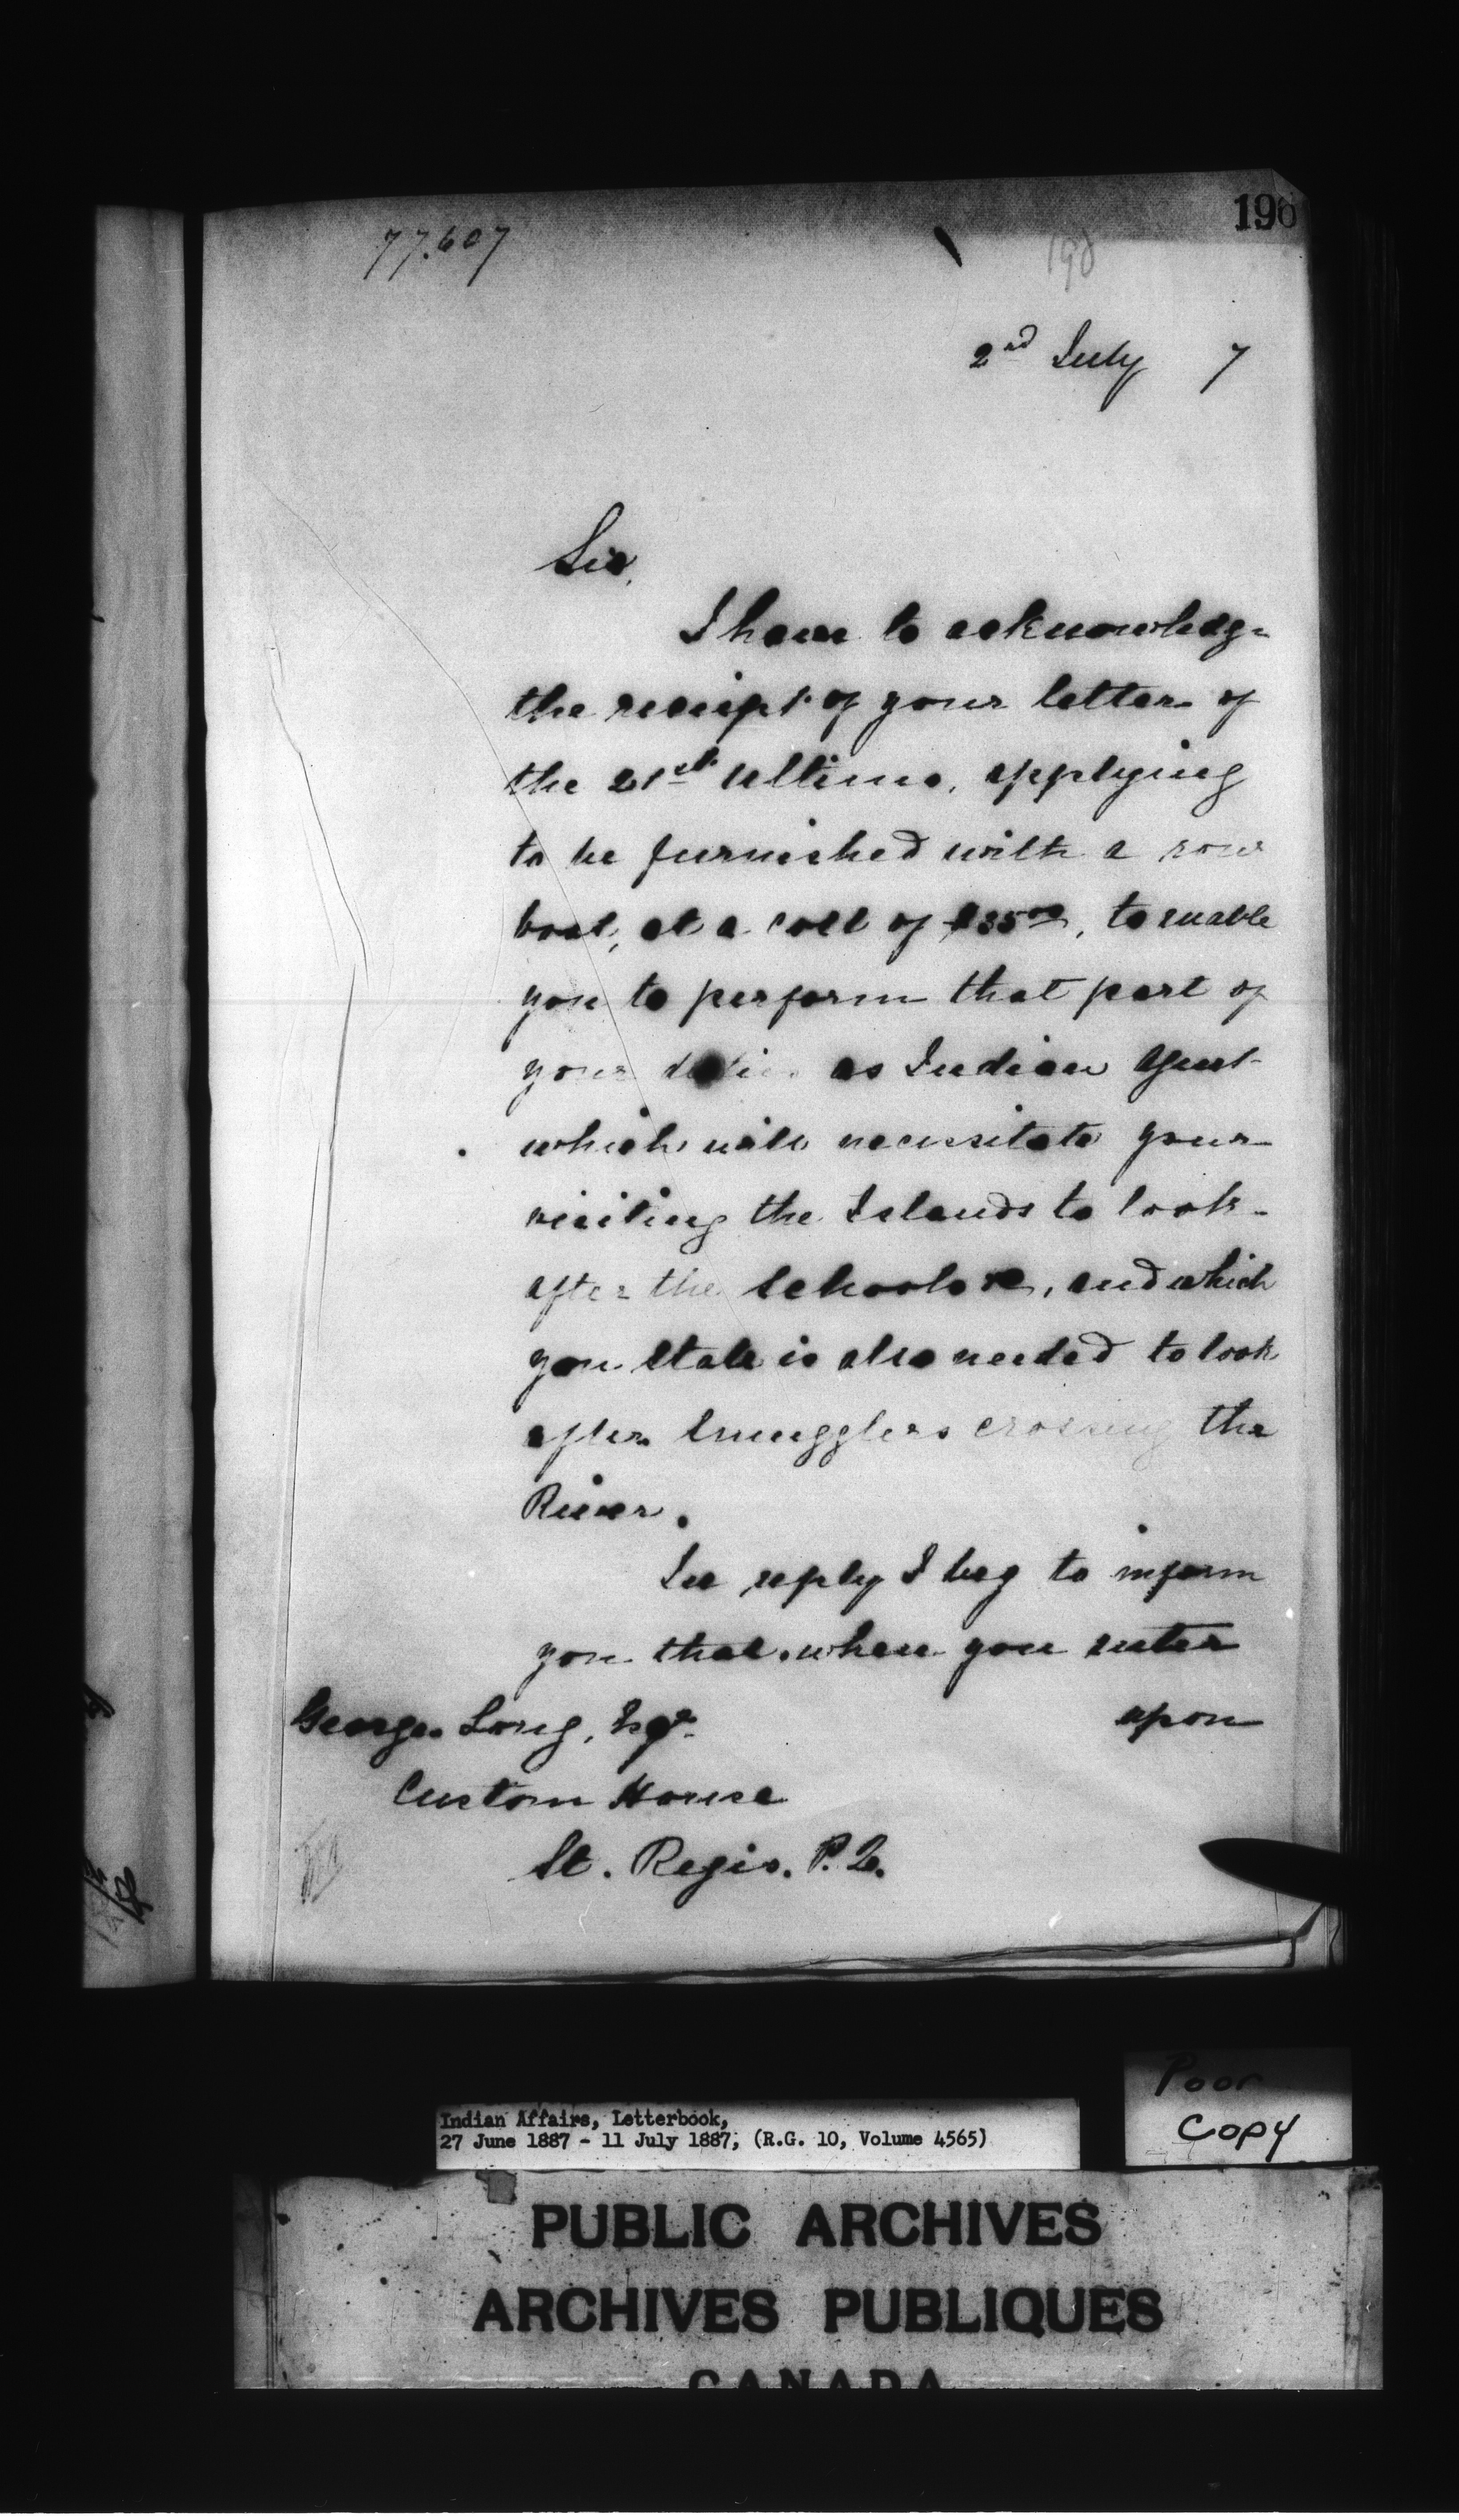 77.607
196
198
2nd July 7
Sir,
I have to acknowledge
the receipt of your letter of
the 21st Ultimo, applying
to be furnished with a row
boat, at a cost of $35.00, to enable
you to perform that part of
your duties as Indian Agent
which will necessitate your
visiting the Islands to look
after the Schools &c, and which
you state is also needed to look
after Smugglers crossing the
River.
In reply I beg to inform
you that when you enter
upon
George Long, Esqr.
Custom House
St. Regis. P.Q.
Poor
Copy
Indian Affairs, Letterbook,
27 June 1887 - 11 July 1887, (R.G. 10, Volume 4565)
PUBLIC ARCHIVES
ARCHIVES PUBLIQUES
CANADA